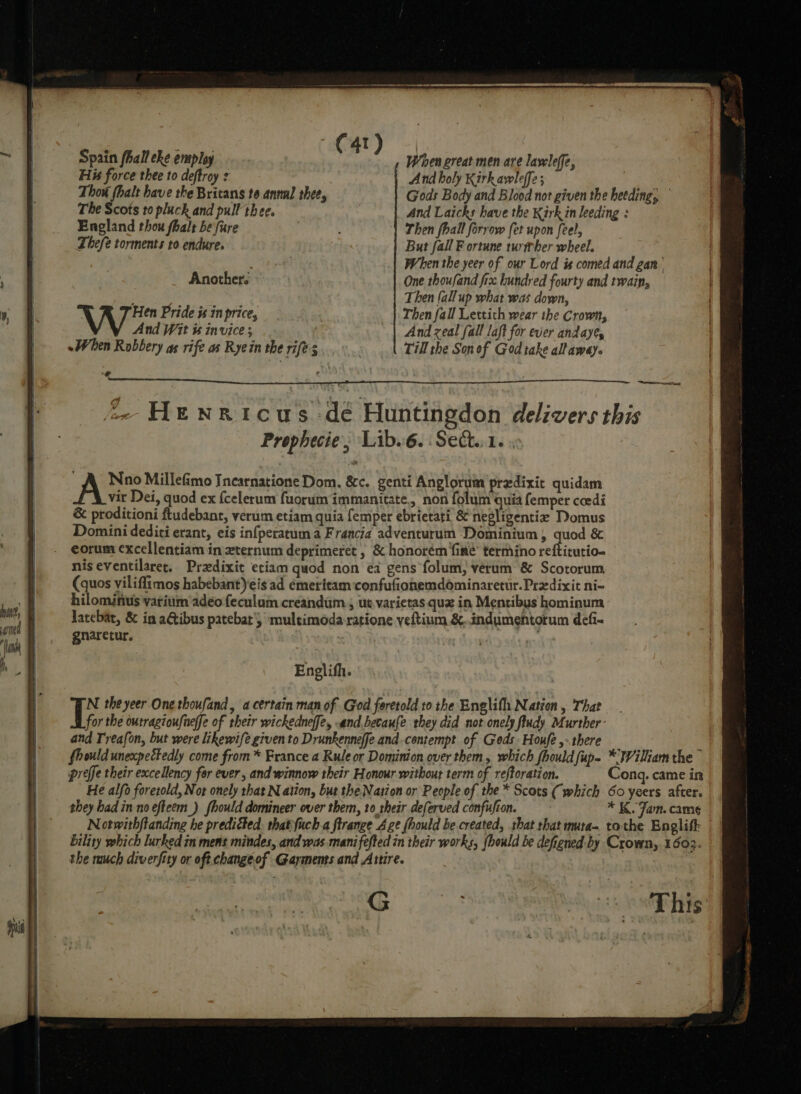 (41)
Spain ſhall eke employ
His force thee to deſtroy :
Thou ſhalt have the Britans to annul thee,
The Scots to pluck and pull thee.
England thou ſhalt be ſure
Theſe torments to endure.
Another.
WHen Pride is in price,
And Wit is in vice;
When Robbery as rife as Rye in the rife;
When great men are lawleſſe,
And holy Kirk awleſſe;
Gods Body and Blood not given the heeding,
And Laicks have the Kirk in leeding :
Then ſhall ſorrow ſet upon feel,
But fall Fortune turn her wheel.
When the yeer of our Lord is comed and gan
One thouſand ſix hundred fourty and twain,
Then fall up what was down,
Then fall Lettich wear the Crown,
And zeal fall laſt for ever and aye,
Till the Son of God take all away.
Henricus de Huntingdon delivers this
Prophecie, Lib. 6. Sect. 1.
ANno Milleſimo Incarnatione Dom. &c. genti Anglorum prædixit quidam
vir Dei, quod ex ſcelerum ſuorum immanitate, non ſolum quia ſemper cœdi
& proditioni ſtudebant, verum etiam quia ſemper ebrietati & negligentiæ Domus
Domini dediti erant, eis inſperatum a Francia adventurum Dominium, quod &
eorum excellentiam in æternum deprimeret, & honorem ſine termino reſtitutio-
nis eventilaret. Prædixit etiam quod non ea gens ſolum, verum & Scotorum
(quos viliſſimos habebant) eis ad emeritam confuſionem dominaretur. Prædixit ni-
hilominus varium adeo ſeculum creandum, ut varietas quæ in Mentibus hominum
latebat, & in actibus patebat, multimoda ratione veſtium & indumentorum deſi-
gnaretur.
Engliſh.
IN the yeer One thouſand, a certain man of God foretold to the Engliſh Nation, That
for the outragiouſneſſe of their wickedneſſe, and becauſe they did not onely ſtudy Murther
and Treaſon, but were likewiſe given to Drunkenneſſe and contempt of Gods Houſe, there
ſhould unexpectedly come from * France a Rule or Dominion over them, which ſhould ſup- * William the
preſſe their excellency for ever, and winnow their Honour without term of reſtoration. Conq. came in
He alſo foretold, Not onely that Nation, but the Nation or People of the * Scots (which 60 yeers after.
they had in no eſteem ) ſhould domineer over them, to their deſerved confuſion. * K. Jam. came
Notwithſtanding he predicted that ſuch a ſtrange Age ſhould be created, that that muta- to the Engliſh
bility which lurked in mens mindes, and was manifeſted in their works, ſhould be deſigned by Crown, 1603.
the much diverſity or oft change of Garments and Attire.
G This